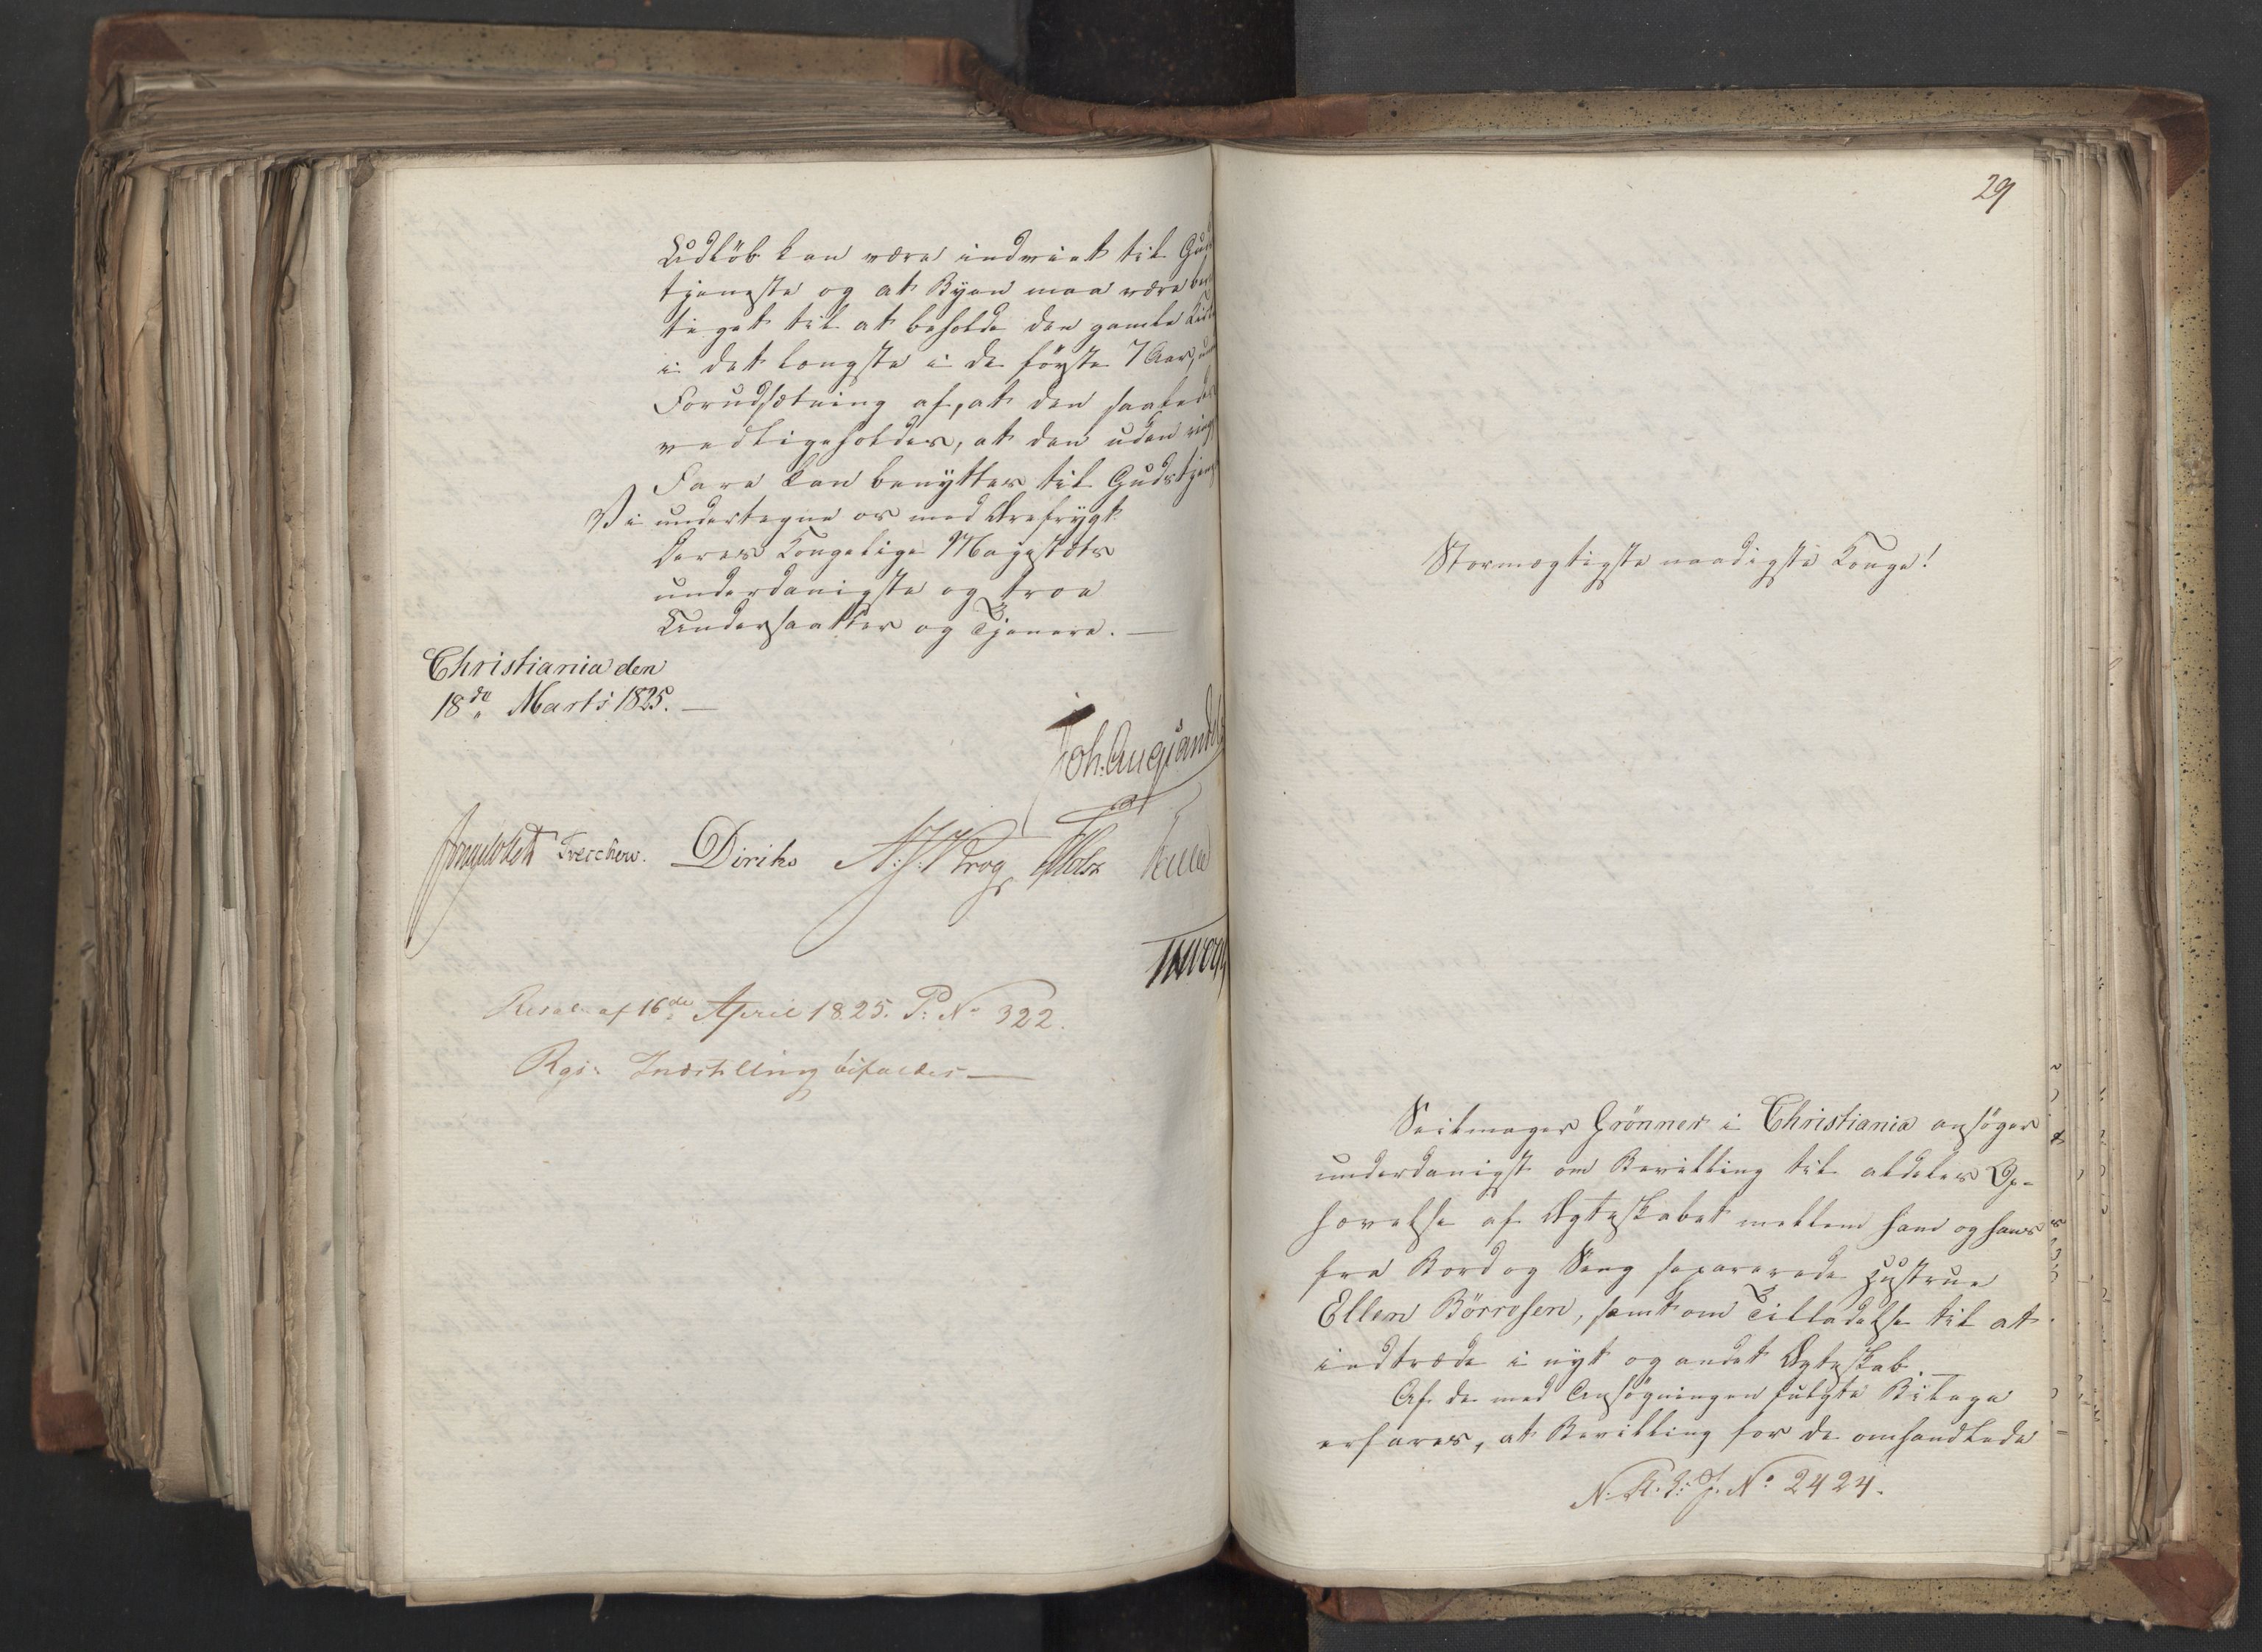 Udløb kan være indviet til Guds
tjeneste og at Byen maa være be
tiget til at beholde den gamle Kirke
i det længste i de første 7 Aar, un
Forudsætning af, at den saaledes
vedligeholdes, at den uden ring
Fare kan benyttes til Gudstjen
Vi undertegne os med Ærefrygt
Deres Kongelige Majestæts
underdanigste og troe
Undersaatter og Tjenere. —
Christiania den
18de Marts 1825. —
Joh. Aug. Sandels
Treschow. Diriks
Resol. af 16de April 1825. P: No 322.
Rgs: Indstilling bifaldes —
29
Stormægtigste naadigste Konge!
Seilmager Grönner i Christiania ansøger
underdanigst om Bevilling til aldeles Op-
hævelse af Ægteskabet mellem ham og hans
fra Bord og Seng separerede Hustrue
Ellen Börresen, samt om Tilladelse til at
indtræde i nyt og andet Ægteskab. —
Af de med Ansøgningen fulgte Bilage
erfares, at Bevilling for de omhandlede
No 2424.